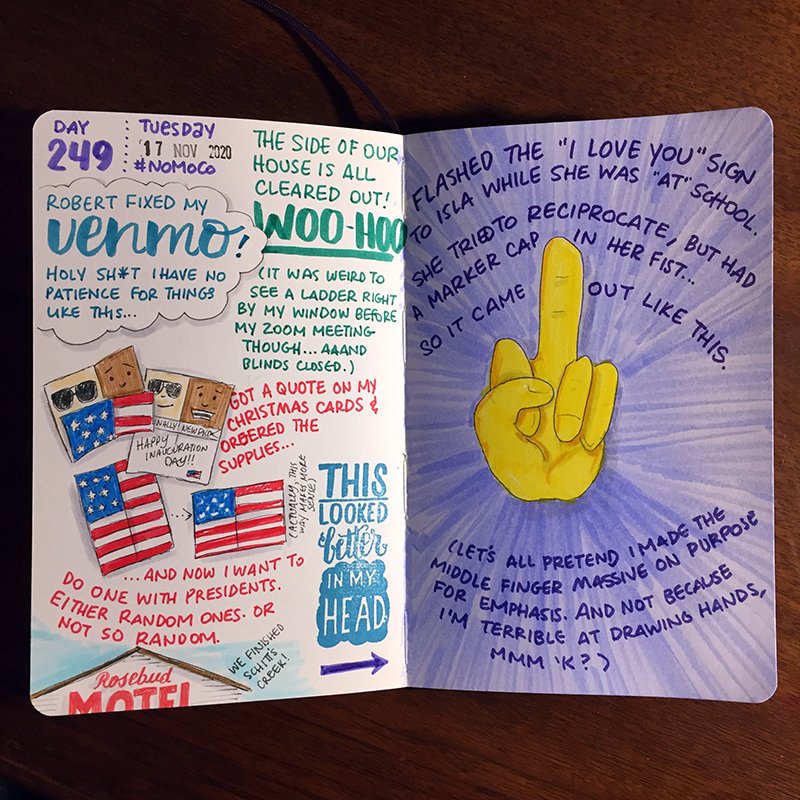 DAY
249
TUESDAY
17 NOV 2020
#NOMOCO
ROBERT FIXED MY
venmo!
HOLY SH*T I HAVE NO
PATIENCE FOR THINGS
LIKE THIS...
THE SIDE OF OUR
HOUSE IS ALL
CLEARED OUT!
WOO-HOO
(IT WAS WEIRD TO
SEE A LADDER RIGHT
BY MY WINDOW BEFORE
MY ZOOM MEETING
THOUGH... AAAND
BLINDS CLOSED.)
GOT A QUOTE ON MY
CHRISTMAS CARDS &
ORDERED THE
SUPPLIES...
HAPPY
INAUGURATION
DAY!!
(ACTUALLY, THIS
WAY MAKES MORE
SENSE)
...AND NOW I WANT TO
DO ONE WITH PRESIDENTS.
EITHER RANDOM ONES. OR
NOT SO RANDOM.
THIS
LOOKED
better
IN MY
HEAD
WE FINISHED
SCHITT'S
CREEK!
Rosebud
MOTEL
FLASHED THE "I LOVE YOU" SIGN
TO ISLA WHILE SHE WAS "AT" SCHOOL.
SHE TRIED TO RECIPROCATE, BUT HAD
A MARKER CAP IN HER FIST...
SO IT CAME OUT LIKE THIS.
(LET'S ALL PRETEND I MADE THE
MIDDLE FINGER MASSIVE ON PURPOSE
FOR EMPHASIS. AND NOT BECAUSE
I'M TERRIBLE AT DRAWING HANDS,
MMM 'K?)